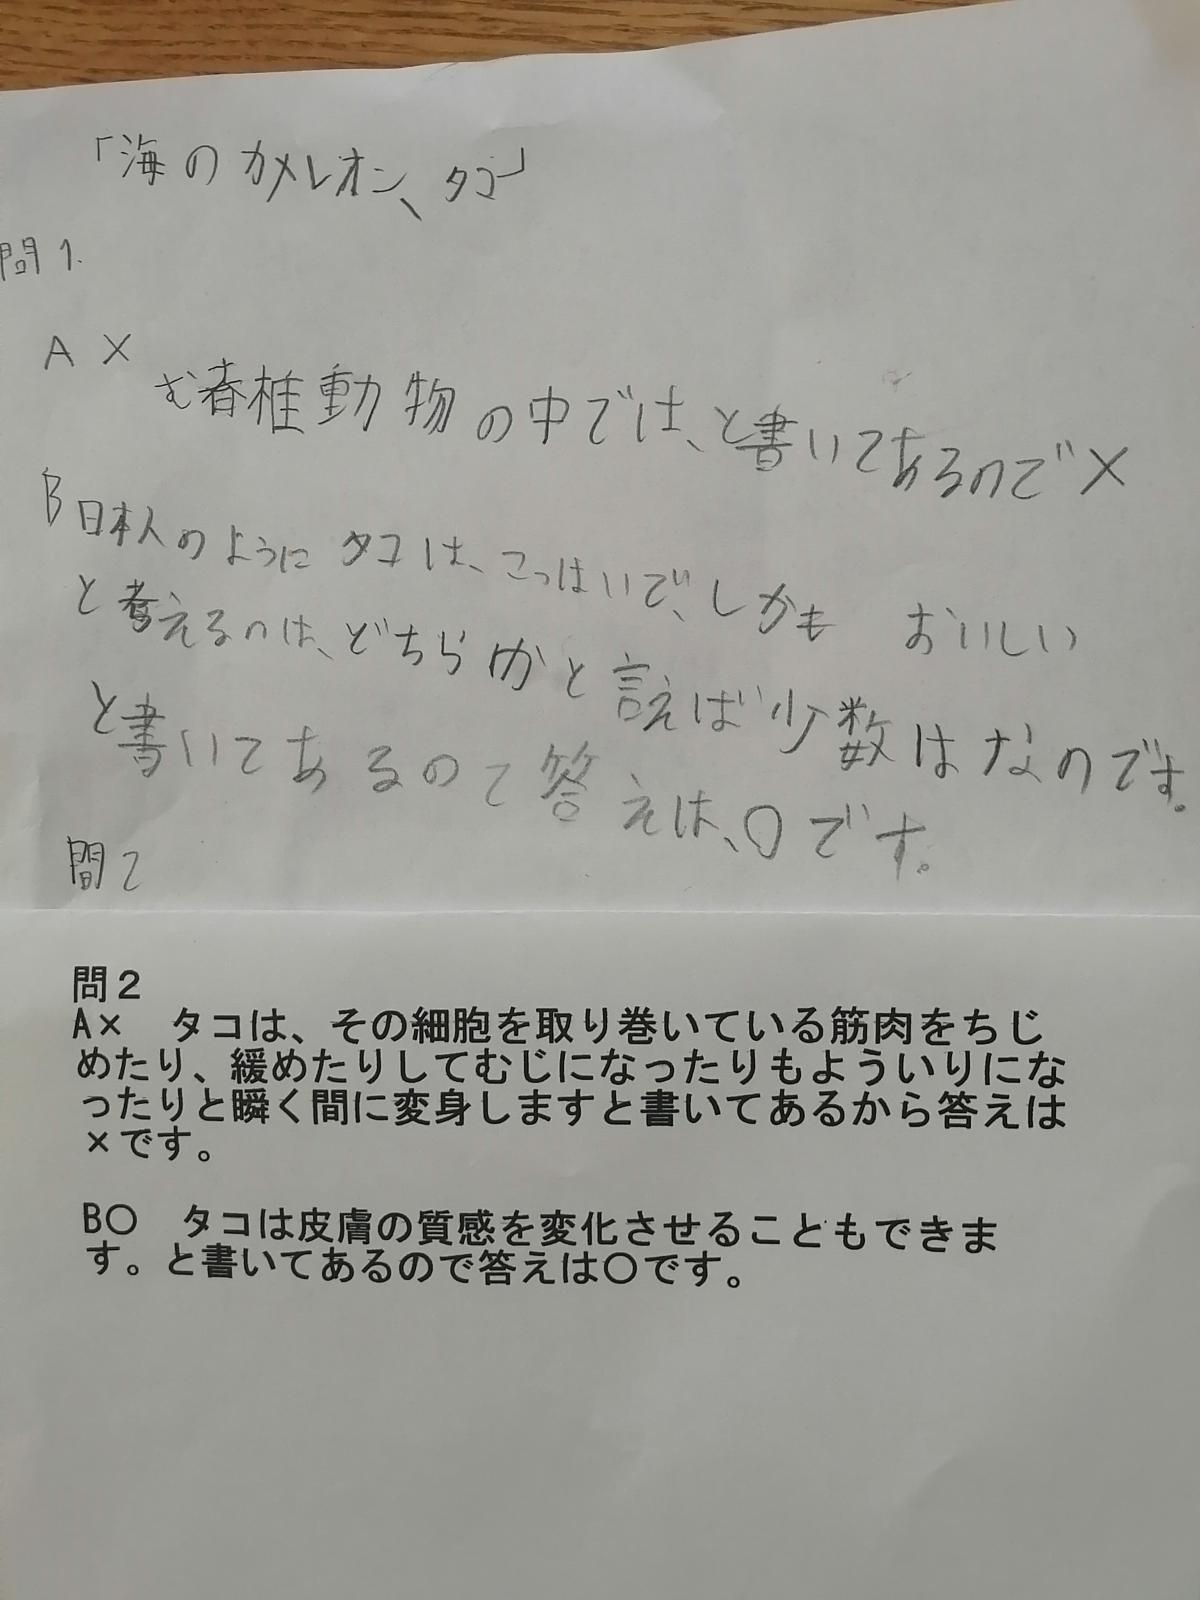 「海のカメレオン、タコ」
問1.
A ×
む脊椎動物の中では、と書いてあるので×
B 日本人のように タコは、こっはいで、しかも おいしい
と考えるのは、どちらかと言えば少数はなのです。
と書いてあるのて答えは、〇です。
問2
問２
A× タコは、その細胞を取り巻いている筋肉をちじ
めたり、緩めたりしてむじになったりもよういりにな
ったりと瞬く間に変身しますと書いてあるから答えは
×です。
B〇 タコは皮膚の質感を変化させることもできま
す。と書いてあるので答えは〇です。